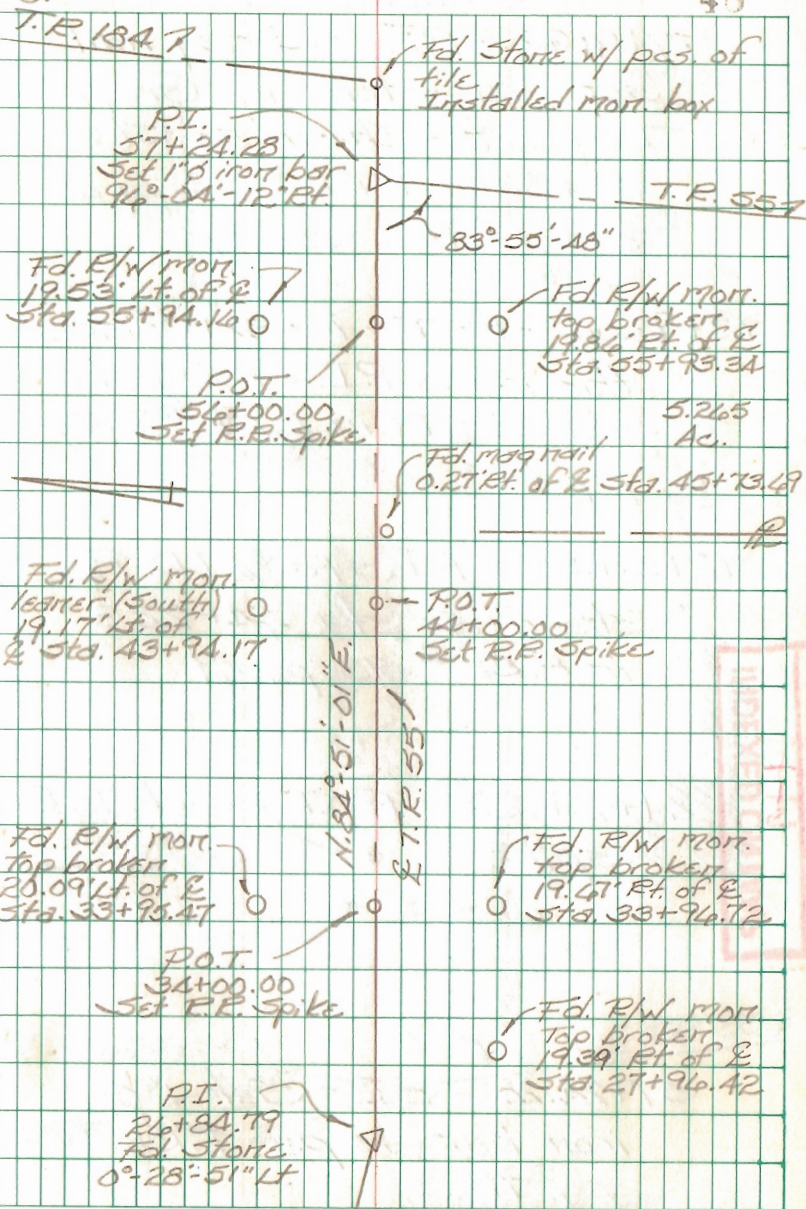 T.R. 184
Fd. Stone w/ pcs. of
tile
Installed mon. box
P.I.
57+24.28
Set 1"ø iron bar
96°-04'-12" Rt.
T.R. 55
83°-55'-48"
Fd. R/W mon.
19.53' Lt. of ℄
Sta. 55+94.16
Fd. R/W mon.
top broken
19.86' Rt. of ℄
Sta. 55+93.34
P.O.T.
56+00.00
Set R.R. Spike
5.265
Ac.
Fd. mag nail
0.27' Rt. of ℄ Sta. 45+73.69
℄
Fd. R/W mon.
leaner (South)
19.17' Lt. of
℄ Sta. 43+94.17
P.O.T.
44+00.00
Set R.R. Spike
N. 84°-51'-01" E.
℄ T.R. 55
INDEXED
Fd. R/W mon.
top broken
20.09' Lt. of ℄
Sta. 33+95.47
Fd. R/W mon.
top broken
19.67' Rt. of ℄
Sta. 33+96.72
P.O.T.
34+00.00
Set R.R. Spike
Fd. R/W mon
Top broken
19.39' Rt of ℄
Sta. 27+96.42
P.I.
26+84.79
Fd. Stone
0°-28'-51" Lt.